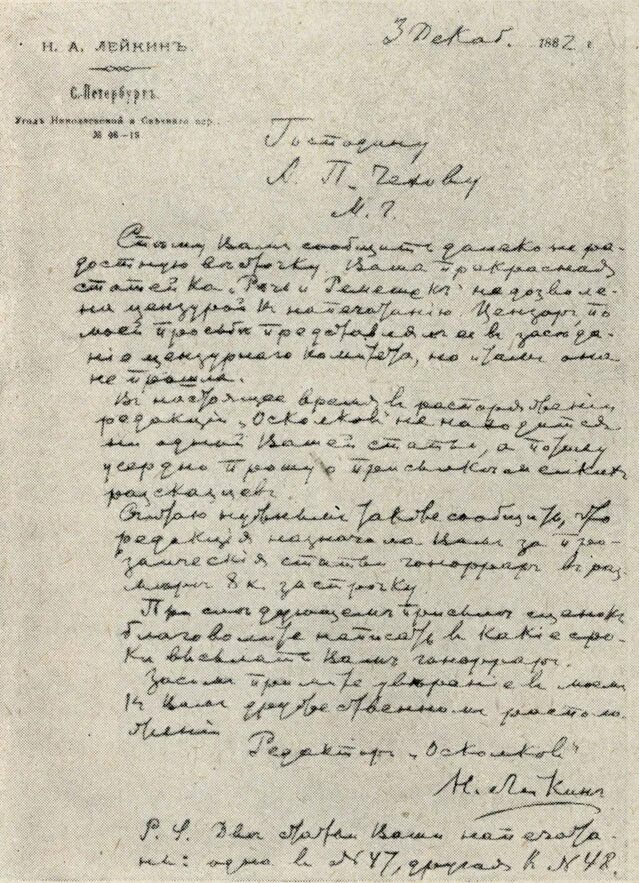 Н. А. ЛЕЙКИНЪ.
С.-Петербургъ.
Уголъ Николаевской и Свѣчного пер.,
№ 46—13
3 Декаб. 1882 г.
Господину
А. П. Чехову
М. Г.
Спѣшу Вамъ сообщить далеко не ра-
достную вѣсточку. Ваша прекрасная
статейка „Рѣчь и Ремешекъ" не дозволе-
на цензурой къ напечатанію. Цензоръ по
моей просьбѣ представлялъ ее въ засѣда-
ніе цензурнаго комитета, но и тамъ она
не прошла.
Въ настоящее время въ распоряженіи
редакціи „Осколковъ" не находится
ни одной Вашей статьи, а потому
усердно прошу о присылкѣ мелкихъ
разсказцевъ.
Считаю нужнымъ также сообщить, что
редакція назначила Вамъ за про-
заическія статьи гонорраръ въ раз-
мѣрѣ 8 к. за строчку.
При слѣдующемъ присылѣ сценокъ
благоволите написать въ какіе сро-
ки высылать Вамъ гонорраръ.
Засимъ примите увѣреніе въ моемъ
къ Вамъ дружественномъ располо-
женіи
Редакторъ „Осколковъ"
Н. Лейкинъ
P. S. Двѣ статьи Ваши напечата-
ны: одна въ № 47, другая въ № 48.